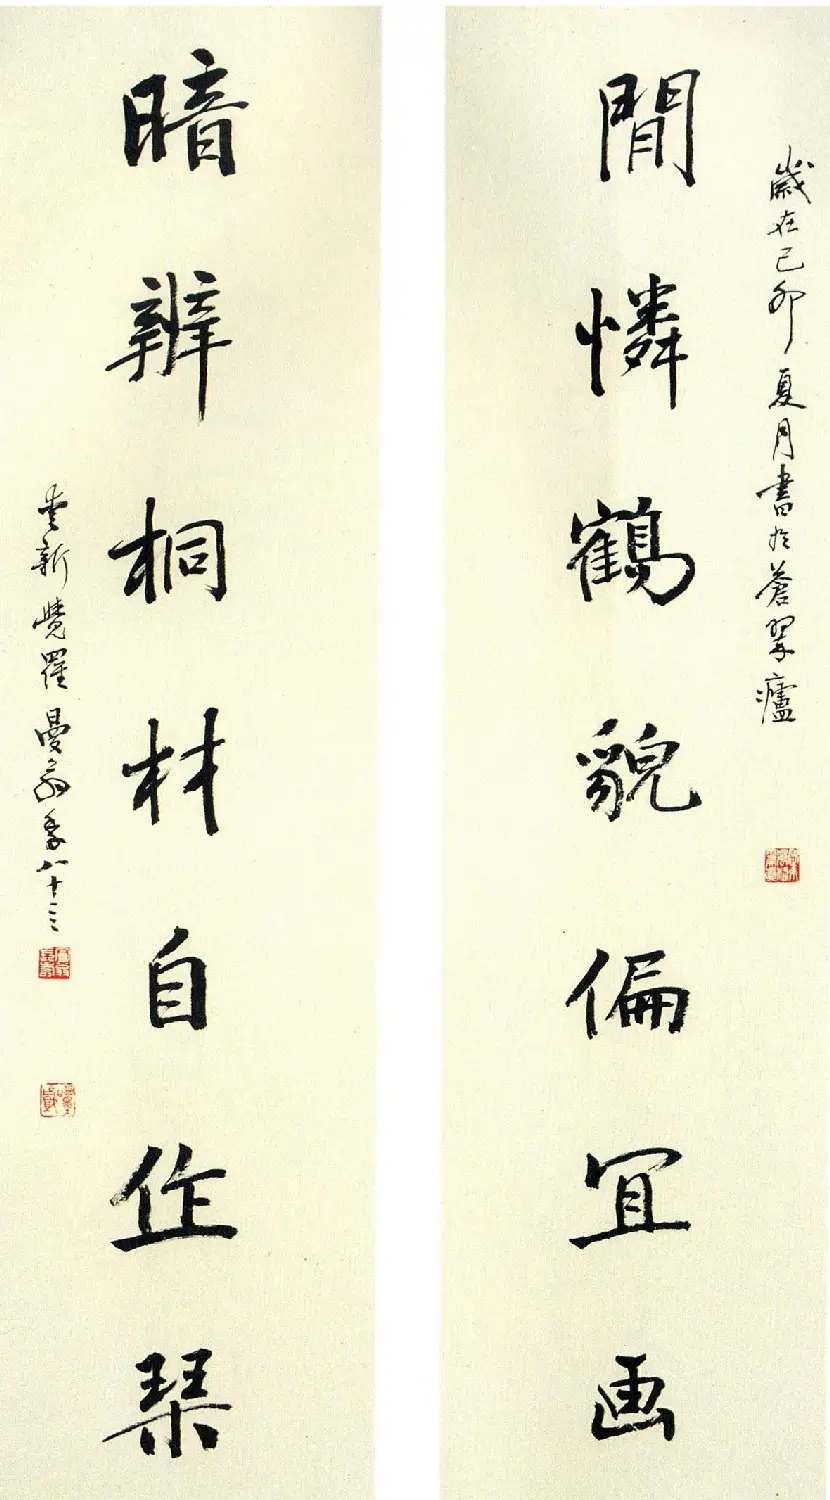 歲在己卯夏月書於蒼翠廬
閒憐鶴貌偏宜画
暗辨桐材自作琴
愛新覺羅曼翁年八十三